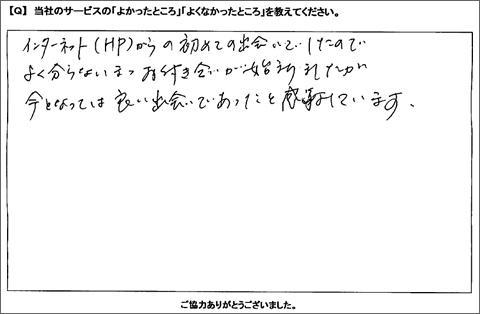 【Q】 当社のサービスの「よかったところ」「よくなかったところ」を教えてください。
インターネット(HP)からの初めての出会いでしたので
よく分らないまゝお付き合いが始まりましたが
今となっては良い出会いであったと感謝しています。
ご協力ありがとうございました。